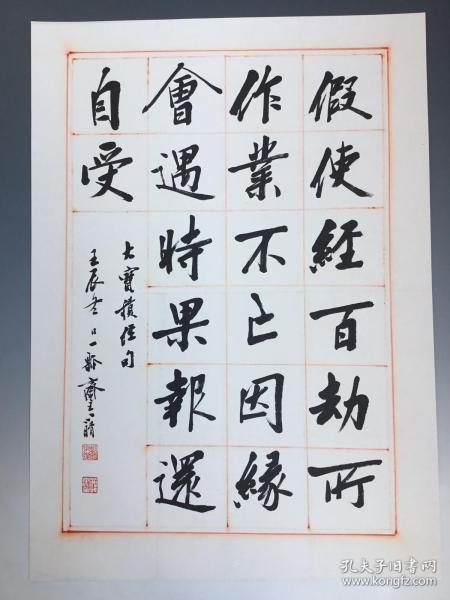 假使經百劫所
作業不亡因緣
會遇時果報還
自受
大寶積經句
壬辰冬日一
孔夫子旧书网
www.kongfz.com